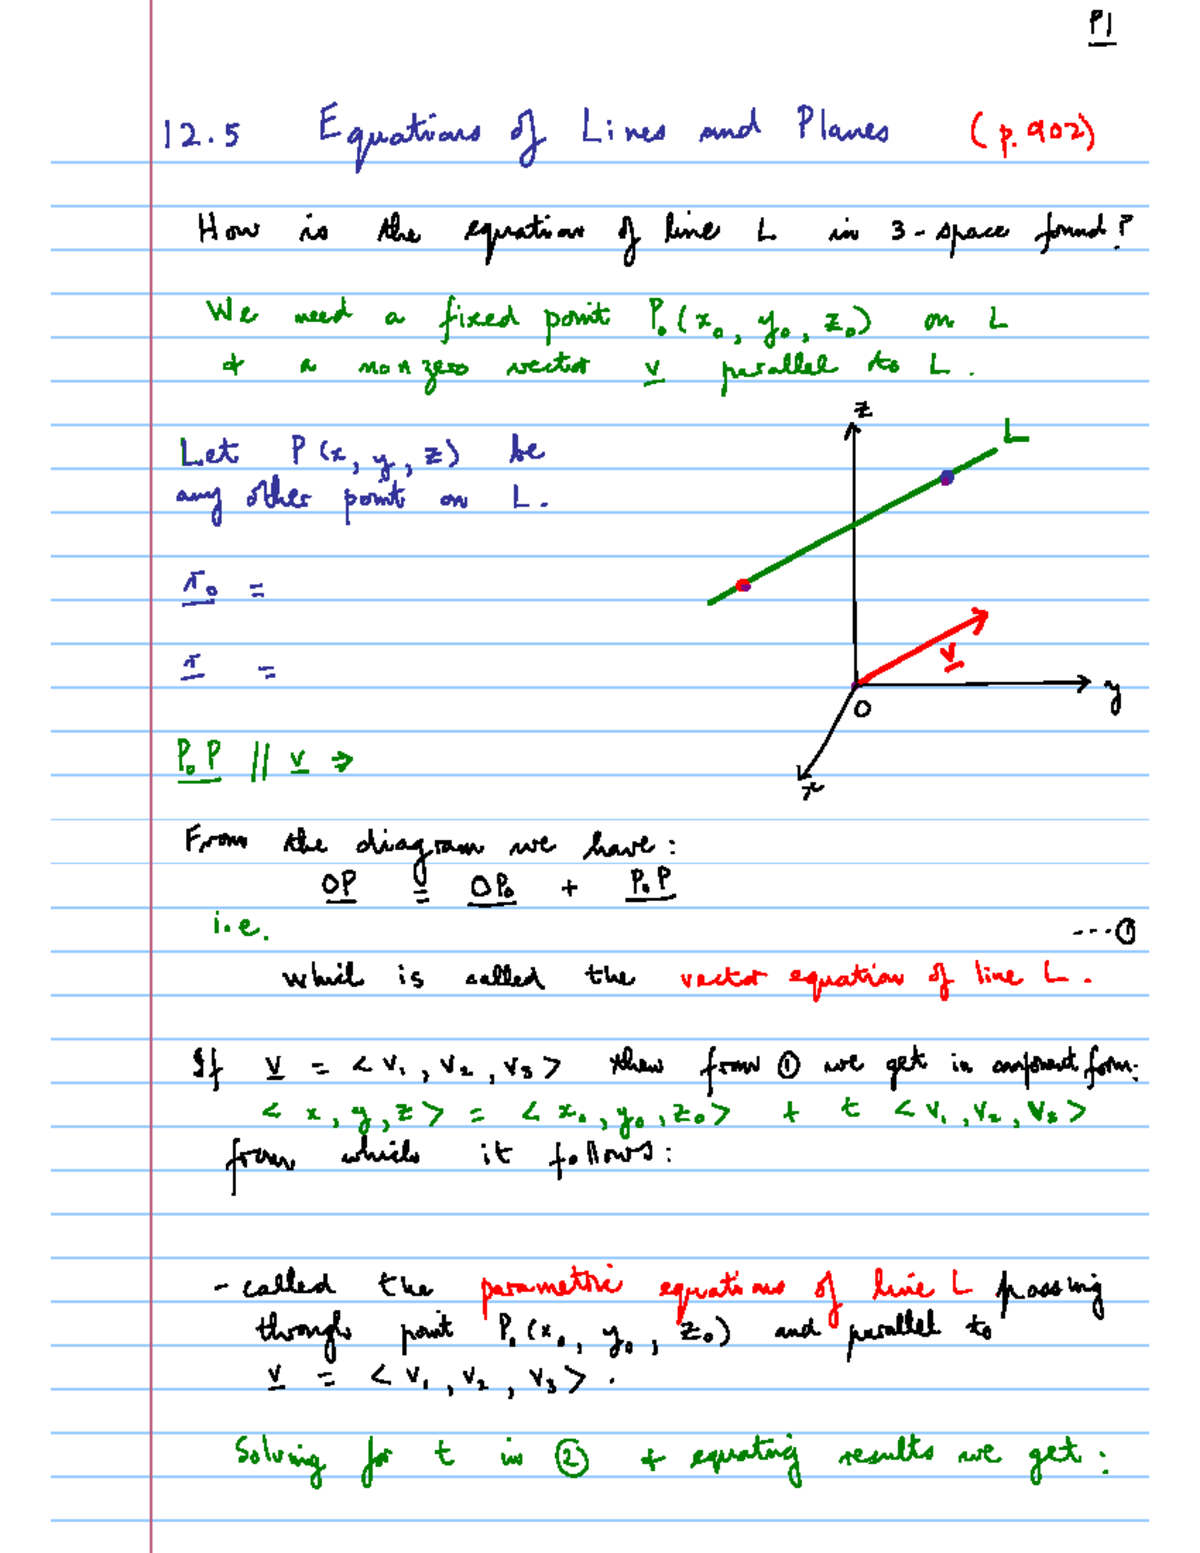 P1
12.5 Equations of Lines and Planes (p. 902)
How is the equation of line L in 3-space found?
We need a fixed point P₀(x₀, y₀, z₀) on L
+ a nonzero vector v parallel to L.
z
L
Let P(x, y, z) be
any other point on L.
r₀ =
v
r =
y
O
P₀P // v ⇒
x
From the diagram we have:
OP = OP₀ + P₀P
i.e. ---①
which is called the vector equation of line L.
If v = <v₁, v₂, v₃> then from ① we get in component form:
<x, y, z> = <x₀, y₀, z₀> + t <v₁, v₂, v₃>
from which it follows:
- called the parametric equations of line L passing
through point P₀(x₀, y₀, z₀) and parallel to
v = <v₁, v₂, v₃>.
Solving for t in ② + equating results we get: